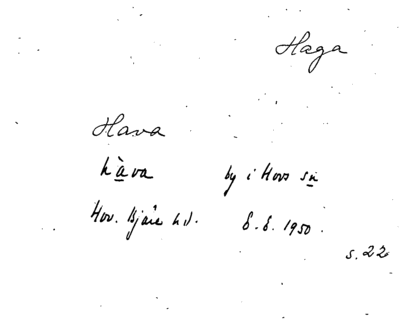 Haga
Hava
hàva by i Hovs sn
Hov. Bjäre hd. E. E. 1950.
s. 22